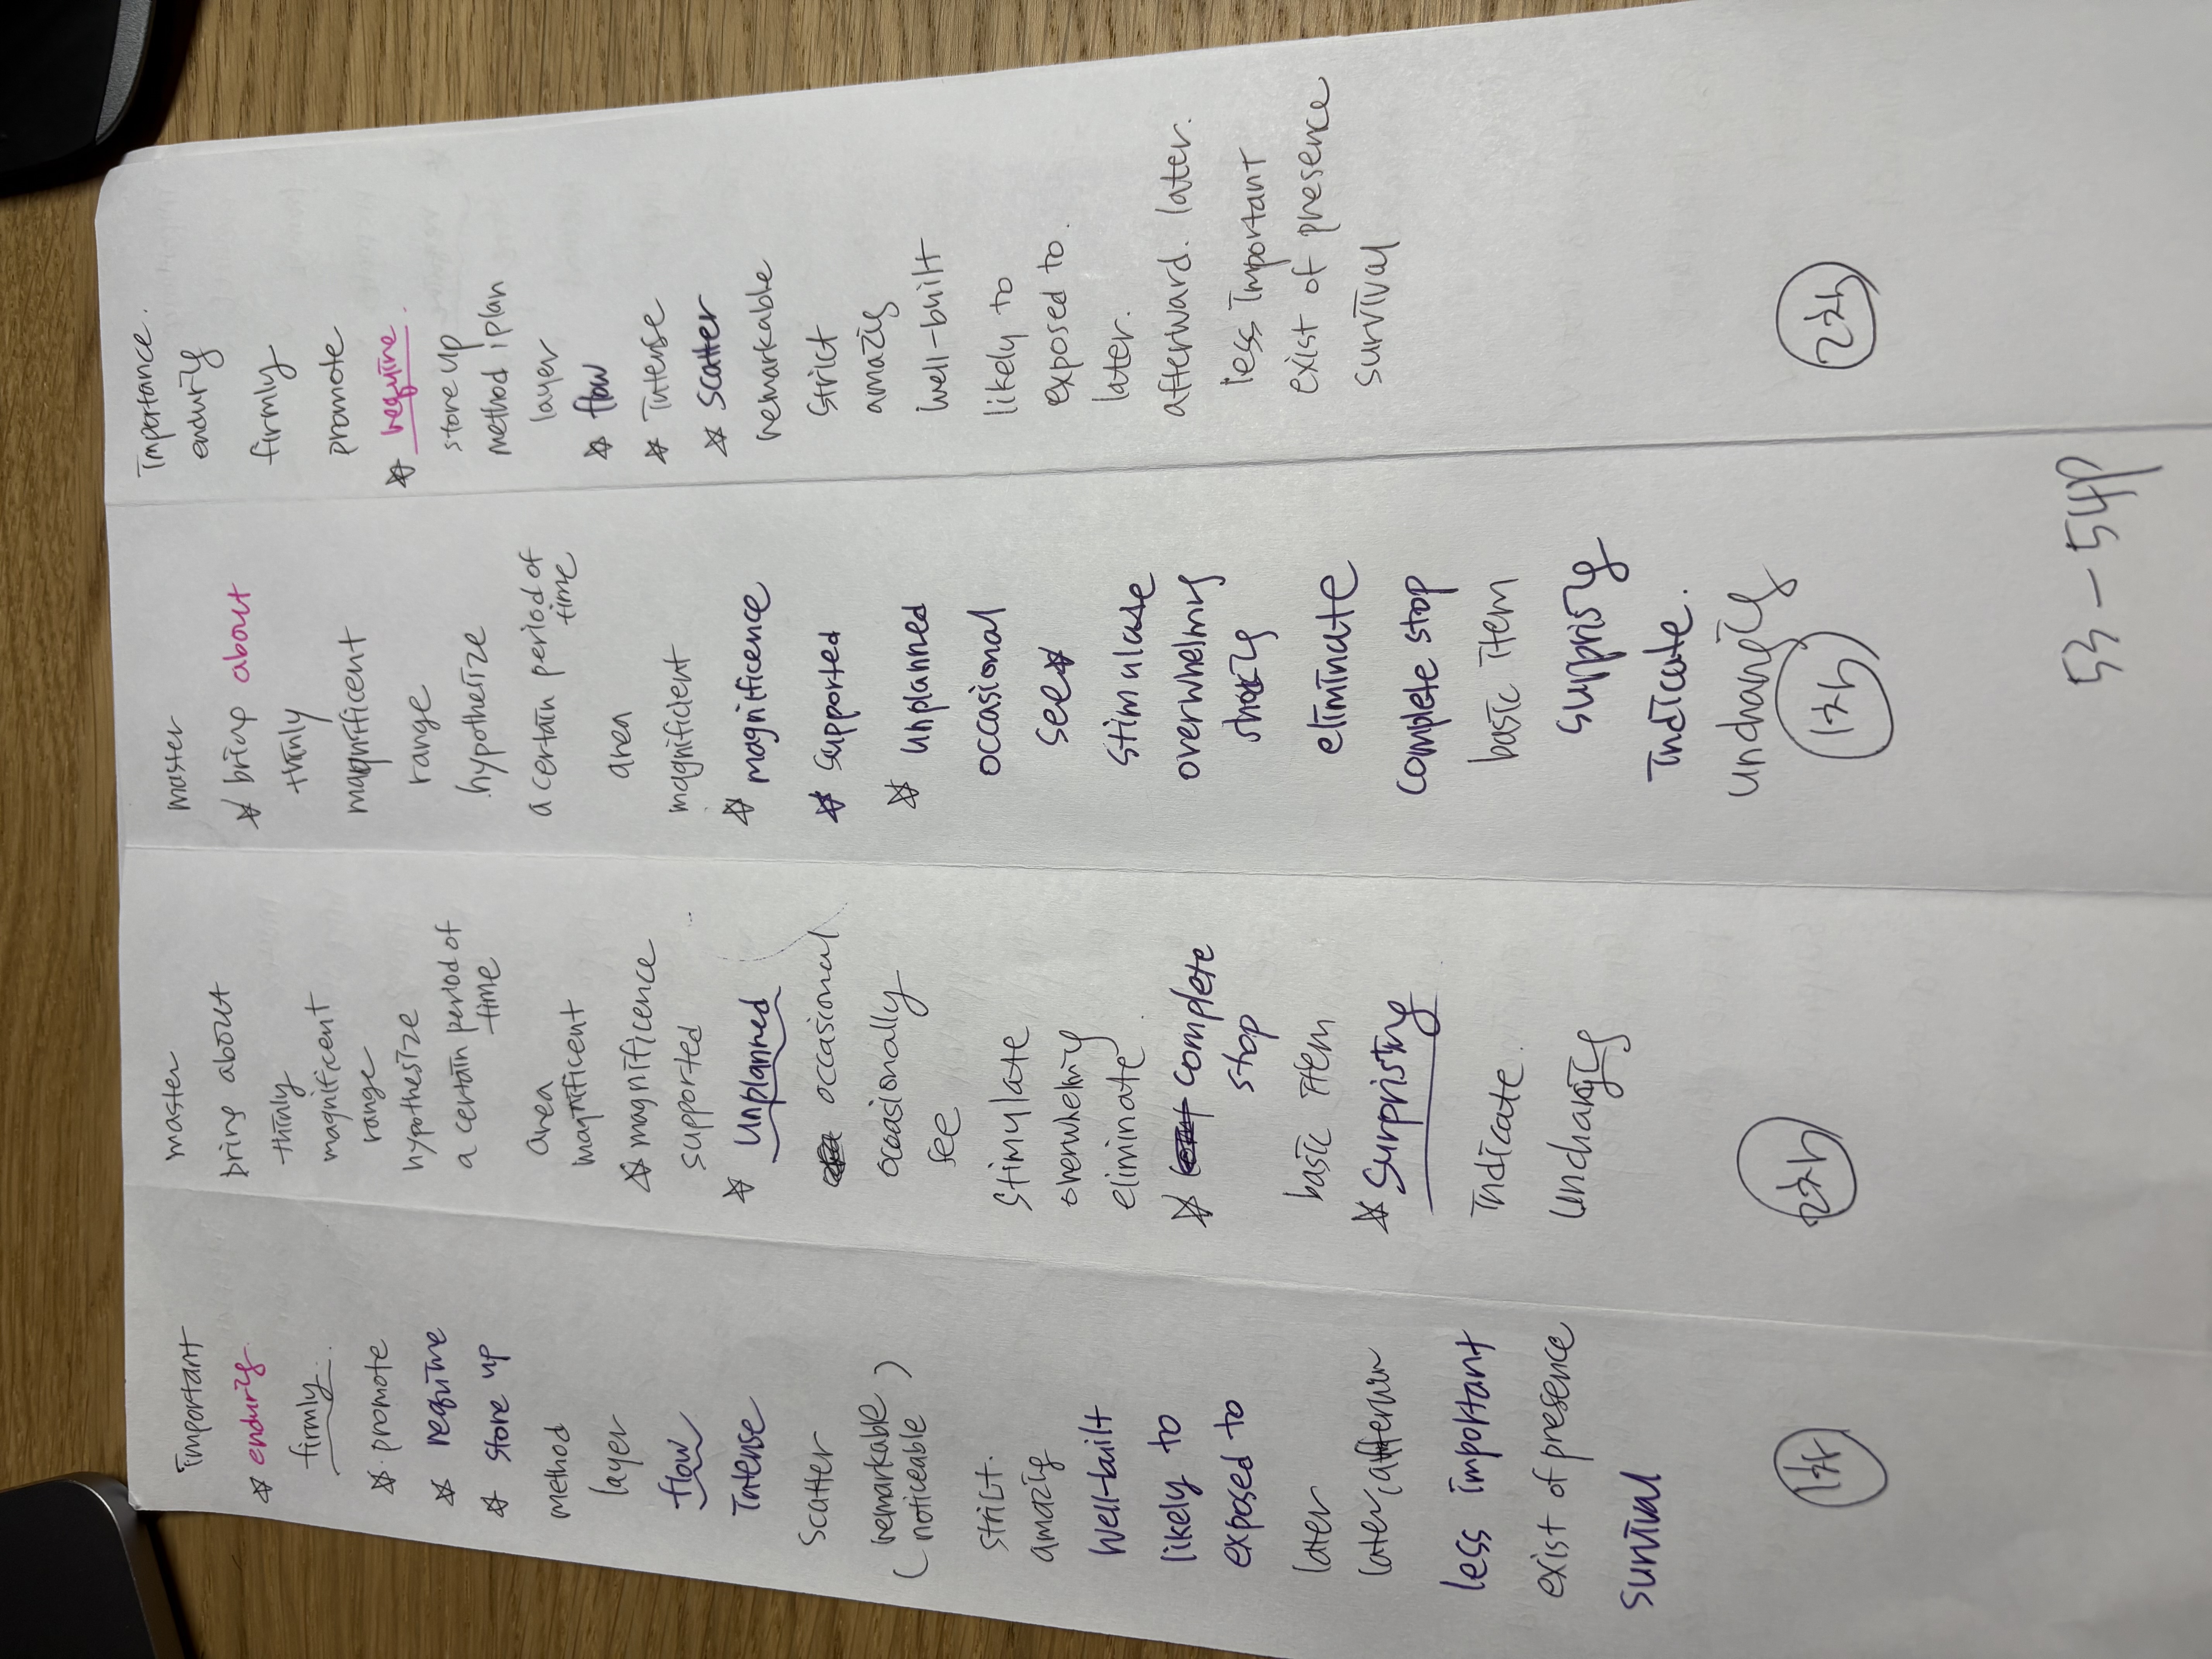 Important
☆ enduring
firmly
☆ promote
☆ require
☆ store up
method
layer
flow
Intense
Scatter
remarkable
(noticeable)
strict.
amazing
well-built
likely to
exposed to
later
later
less important
exist of presence
survival
1차
master
bring about
thinly
magnificent
range
hypothesize
a certain period of
time
area
magnificent
☆ magnificence
supported
☆ unplanned
occasional
occasionally
see
stimulate
overwhelming
eliminate
☆ complete
stop
basic item
☆ surprising
Indicate.
Unchanging
2차
master
☆ bring about
thinly
magnificent
range
hypothesize
a certain period of
time
area
magnificient
☆ magnificence
☆ supported
☆ unplanned
occasional
see
stimulate
overwhelming
eliminate
complete stop
basic item
surprising
Indicate.
Unchanging
1차
53-54p
Importance.
enduring
firmly
promote
☆ require.
store up
method, plan
layer
☆ flow
☆ Intense
☆ Scatter
remarkable
Strict
amazing
well-built
likely to
exposed to.
later.
afterward. later.
less Important
exist of presence
survival
2차